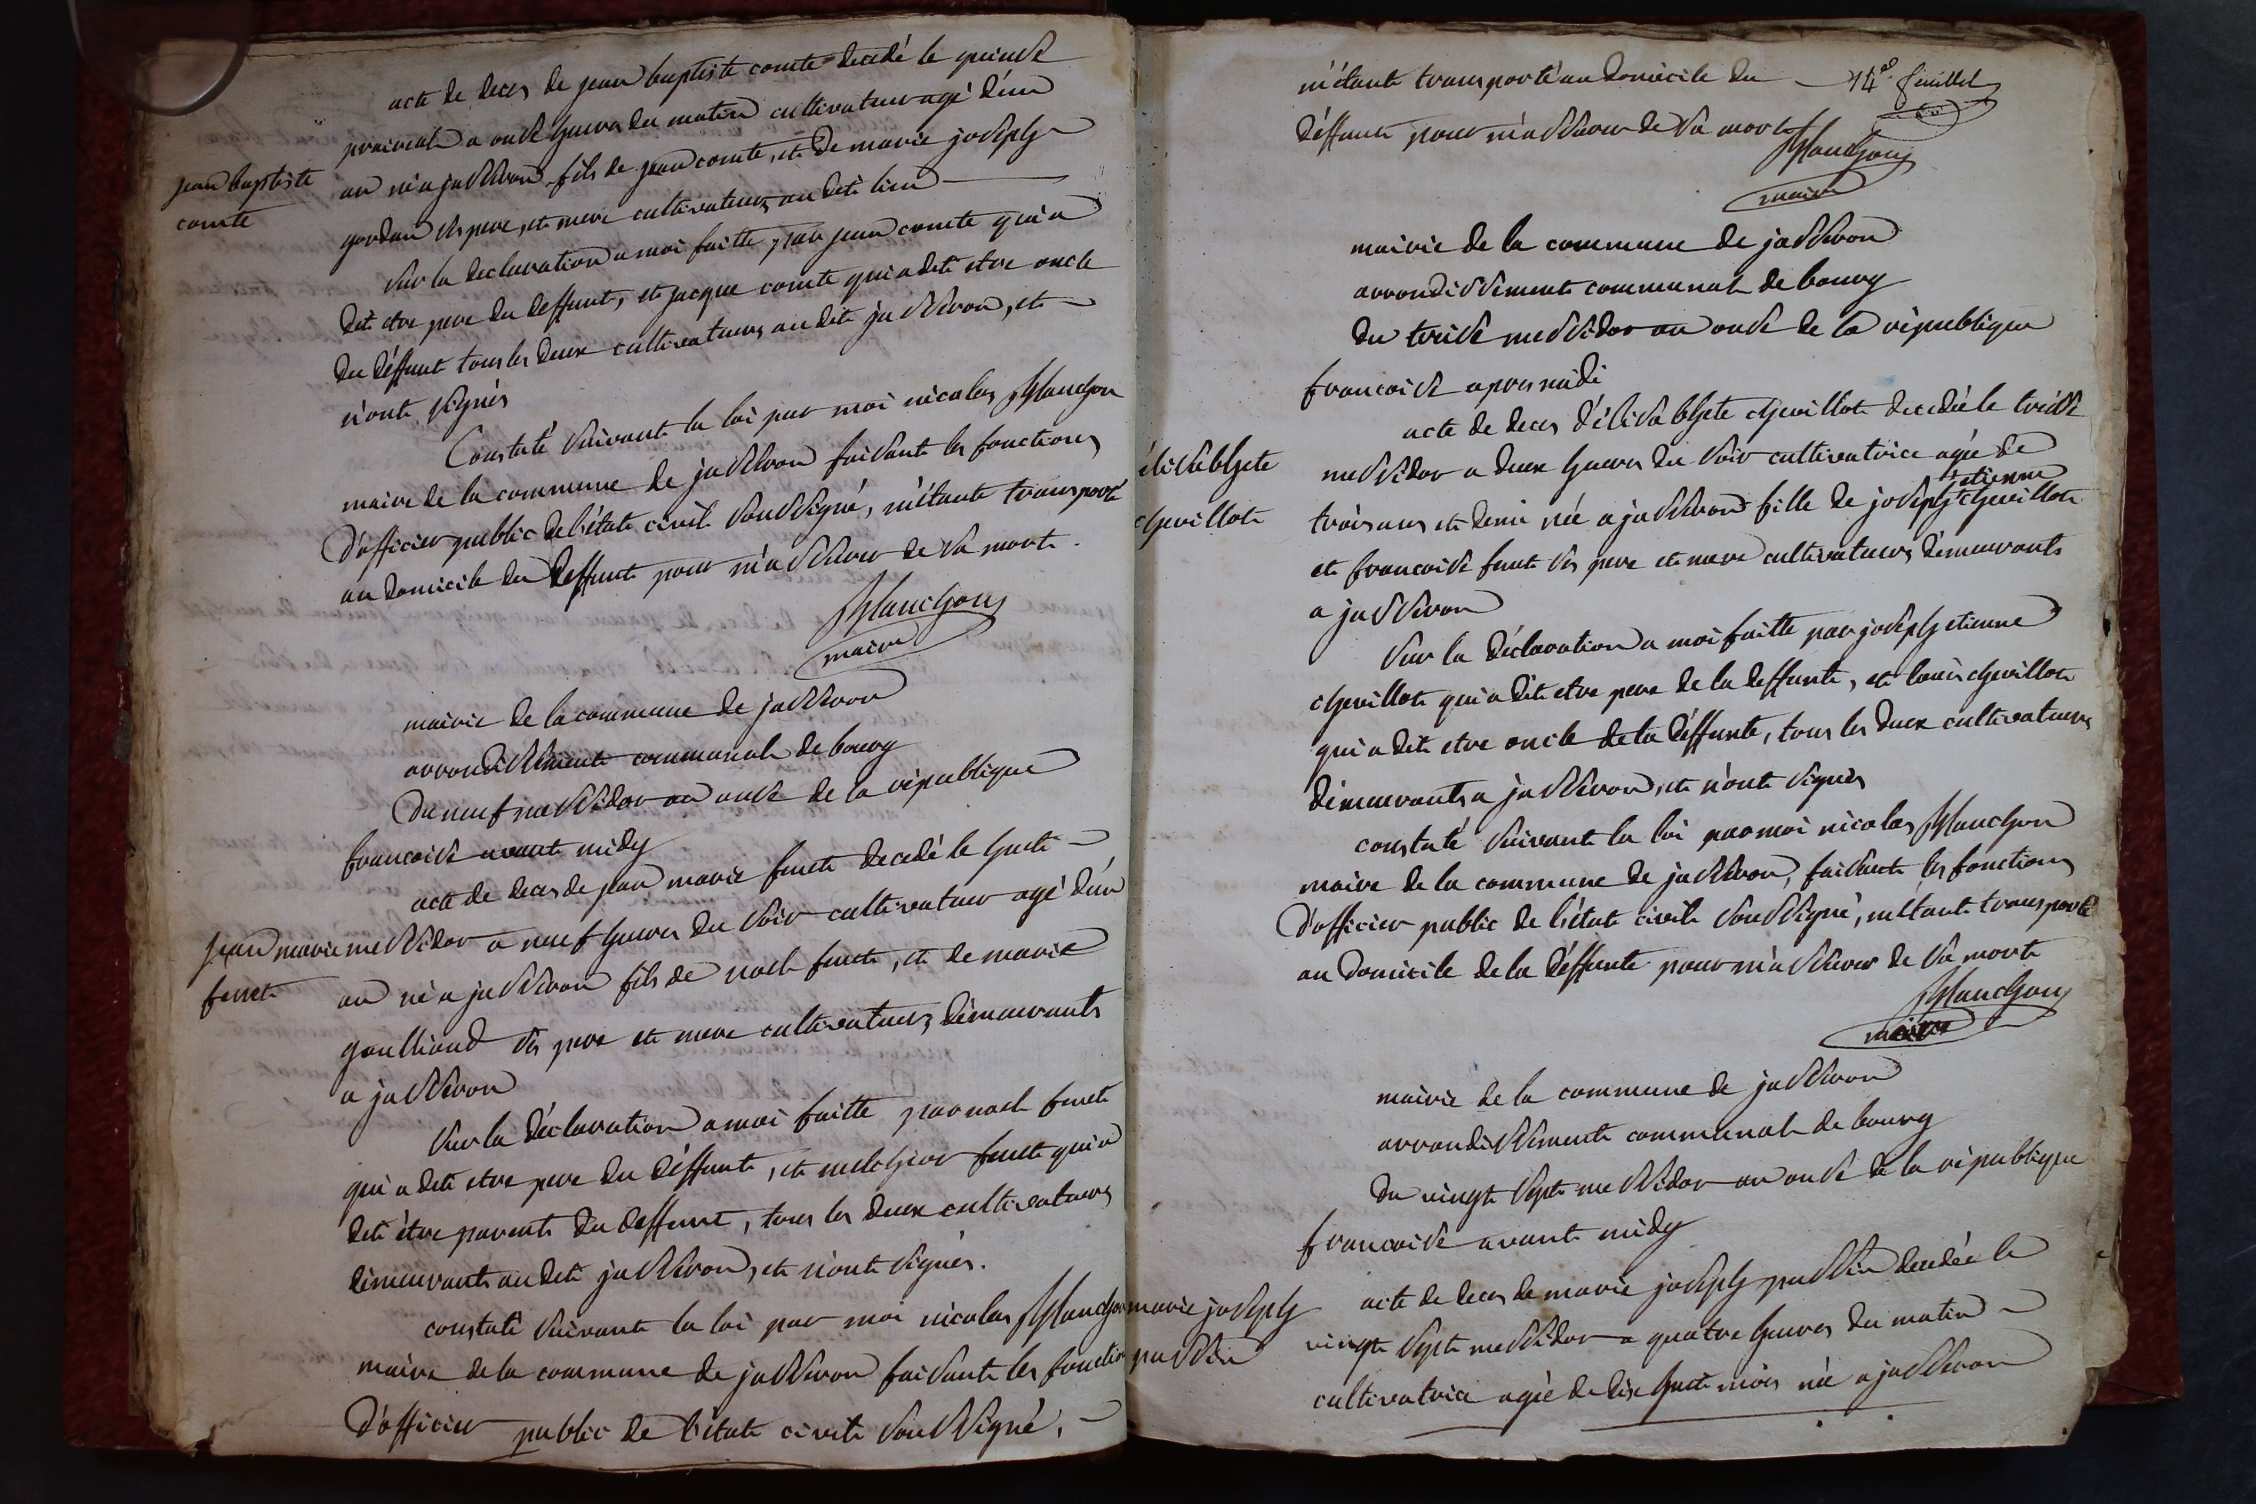 acte de deces de jean baptiste comte decedé le quinze
prairial a onze heures du matin cultivateur agé d'un
jean baptiste
comte
an né a jasseron fils de jean comte, et de marie joseph
gordan ses pere, et mere cultivateurs au dit lieu
sur la declaration a moi faitte par jean comte qui a
dit etre pere du deffunt, et jacque comte qui a dit etre oncle
du déffunt tous les deux cultivateurs au dit jasseron, et
n'ont signés
Constaté suivant la loi par moi nicolas Manchon
maire de la commune de jasseron faisant les fonctions
d'officier public de l'état civil soussigné, m'étant transporté
au domicile du deffunt pour m'assurer de sa mort.
Manchon
maire
mairie de la commune de jasseron
arrondissement communal de bourg
Du neuf messidor an onze de la république
francoise avant midy
acte de deces de jean marie feret decedé le huit
jean marie
feret
messidor a neuf heures du soir cultivateur agé d'un
an né a jasseron fils de noel feret, et de marie
goulliand ses pere et mere cultivateurs démeurants
a jasseron
sur la déclaration a moi faitte par noel feret
qui a dit etre pere du déffunt, et melchior feret qui a
dit étre parent du deffunt, tous les deux cultivateurs
démeurants au dit jasseron, et n'ont signés.
constaté suivant la loi par moi nicolas Manchon
maire de la commune de jasseron faisant les fonction
d'officier public de l'état civil soussigné,
m'étant transporté au domicile du
14e feuillet
déffunt pour m'assurer de sa mort
Manchon
maire
mairie de la commune de jasseron
arrondissement communal de bourg
du treize messidor an onze de la république
francoise apres midi
acte de deces d'élisabhete chevillot decedée le treize
élisabhete
chevillot
messidor a deux heures du soir cultivatrice agée de
trois ans et demi née a jasseron fille de joseph etienne chevillot
et francoise feret ses pere et mere cultivateurs démeurants
a jasseron
sur la déclaration a moi faitte par joseph etienne
chevillot qui a dit etre pere de la deffunte, et louis chevillot
qui a dit etre oncle de la déffunte, tous les deux cultivateurs
démeurants a jasseron, et n'ont signés
constaté suivant la loi par moi nicolas Manchon
maire de la commune de jasseron, faisant les fonctions
d'officier public de l'état civil soussigné, m'étant transporté
au domicile de la déffunte pour m'assurer de sa mort
Manchon
maire
mairie de la commune de jasseron
arrondissement communal de bourg
du vingt sept messidor an onze de la république
francoise avant midy
acte de deces de marie joseph passin decedée le
marie joseph
passin
vingt sept messidor a quatre heures du matin
cultivatrice agée de dix huit mois née a jasseron